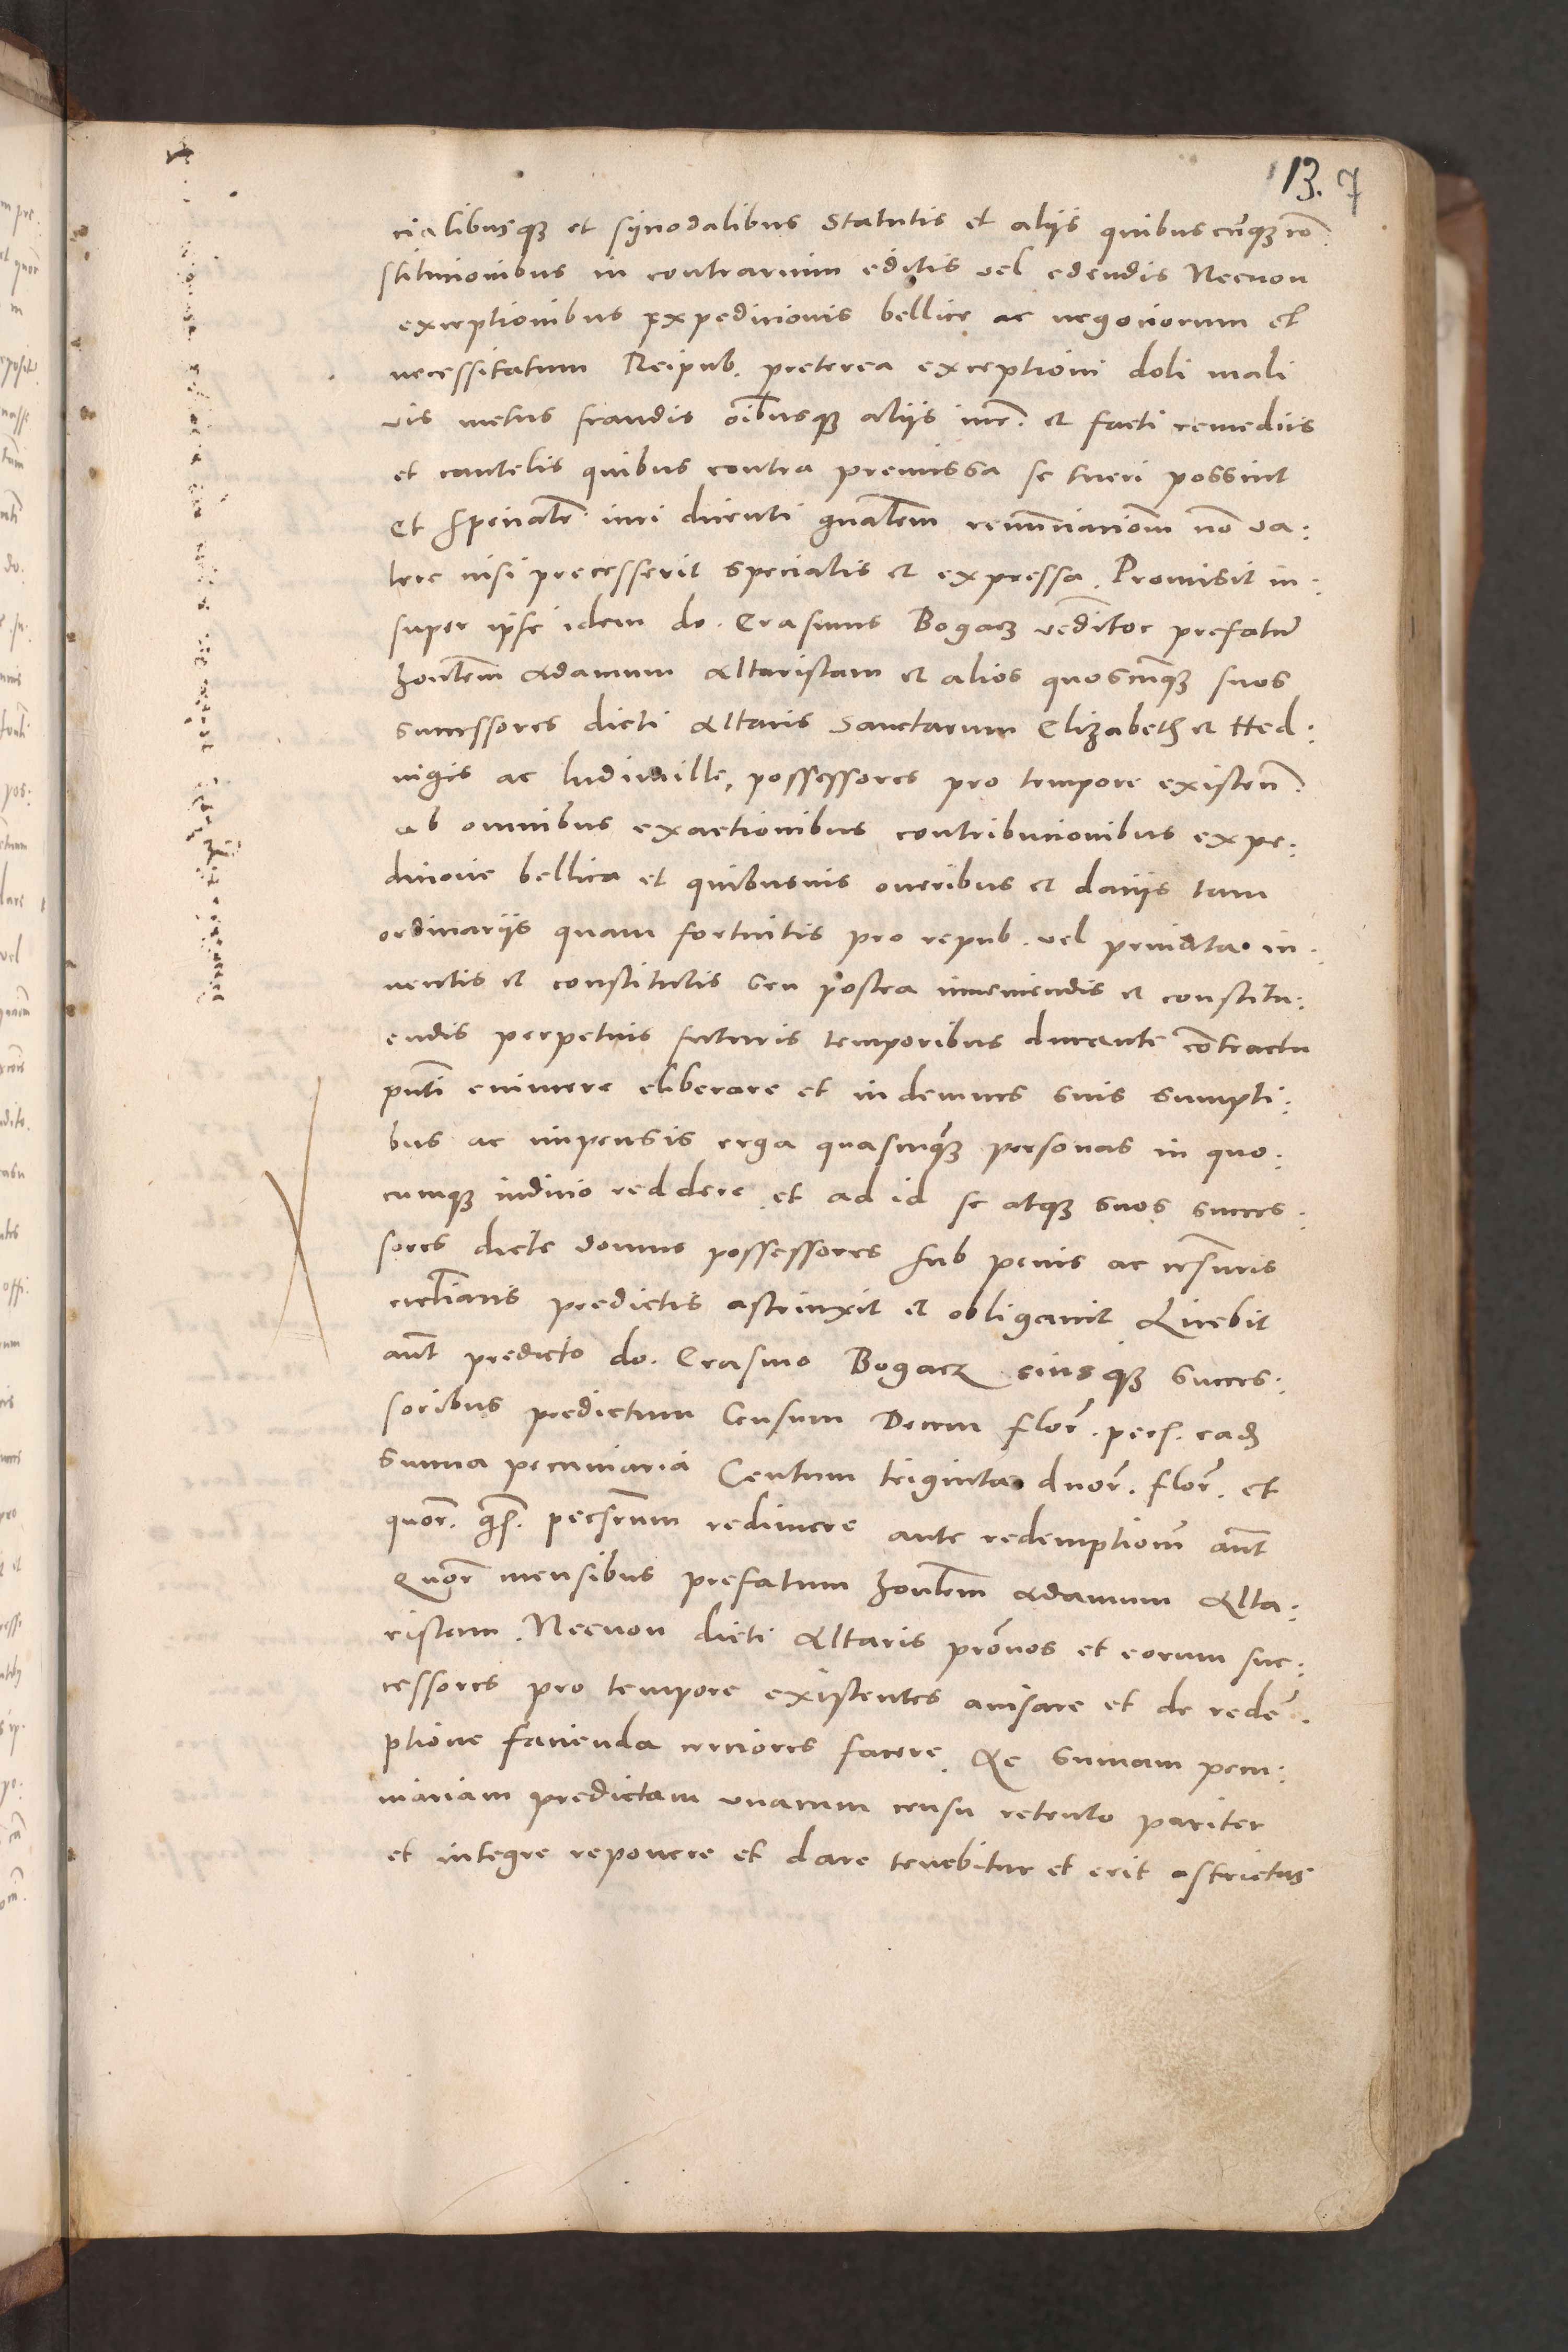 13. 7
cialibusq3 et synodalibus Statutis et alijs quibuscu̅q3 co̅
stitucionibus in contrarium editis vel edendis Necnon
exceptionibus expedicionis bellice ac negociorum et
necessitatum Reipub. preterea exceptioni doli mali
vis metus fraudis o̅ibusq3 alijs iur̅. et facti remedijs
et cautelis quibus contra premissa se tueri possint
Et sp̅ecialit̅ iuri dicenti gn̅alem renu̅nciacio̅m no̅ va:
lere nisi precesserit specialis et expressa. Promisit in:
super ipse idem do. Erasmus Bogacz ve̅ditor prefatu̅
ho̅lem Adamum Altaristam et alios quoscu̅q3 suos
successores dicti Altaris Sanctarum Elizabeth et Hed:
vigis ac ludimille, possessores pro tempore existen̅.
ab omnibus exactionibus contribucionibus expe:
dicione bellica et quibusuis oneribus et dacijs tam
ordinarijs quam fortuitis pro repub. vel priuata in:
ventis et constitutis seu postea inueniendis et constitu:
endis perpetuis futuris temporibus durante co̅tractu
pn̅ti eximere eliberare et indemnes suis sumpti:
bus ac impensis erga quascu̅q3 personas in quo:
cumq3 iudicio reddere et ad id se atq3 suos succes:
sores dicte domus possessores sub penis ac ce̅suris
eccl̅iacis predictis astrinxit et obligauit Licebit
aut̅ predicto do. Erasmo Bogacz eiusq3 succes:
soribus predictum Censum Decem flor̅. per s. ead̅
summa pecuniaria Centum triginta duor̅. flor̅. et
quor̅. gs̅. persr̅um redimere ante redemptiom̅ aut̅
Quor̅ mensibus prefatum ho̅lem Adamum Alta:
ristam. Necnon dicti Altaris pro̅nos et eorum suc:
cessores pro tempore existentes auisare et de rede̅:
ptione facienda cerciores facere. Ac summam pecu:
niariam predictam vnacum censu retento pariter
et integre reponere et dare tenebitur et erit astrictus